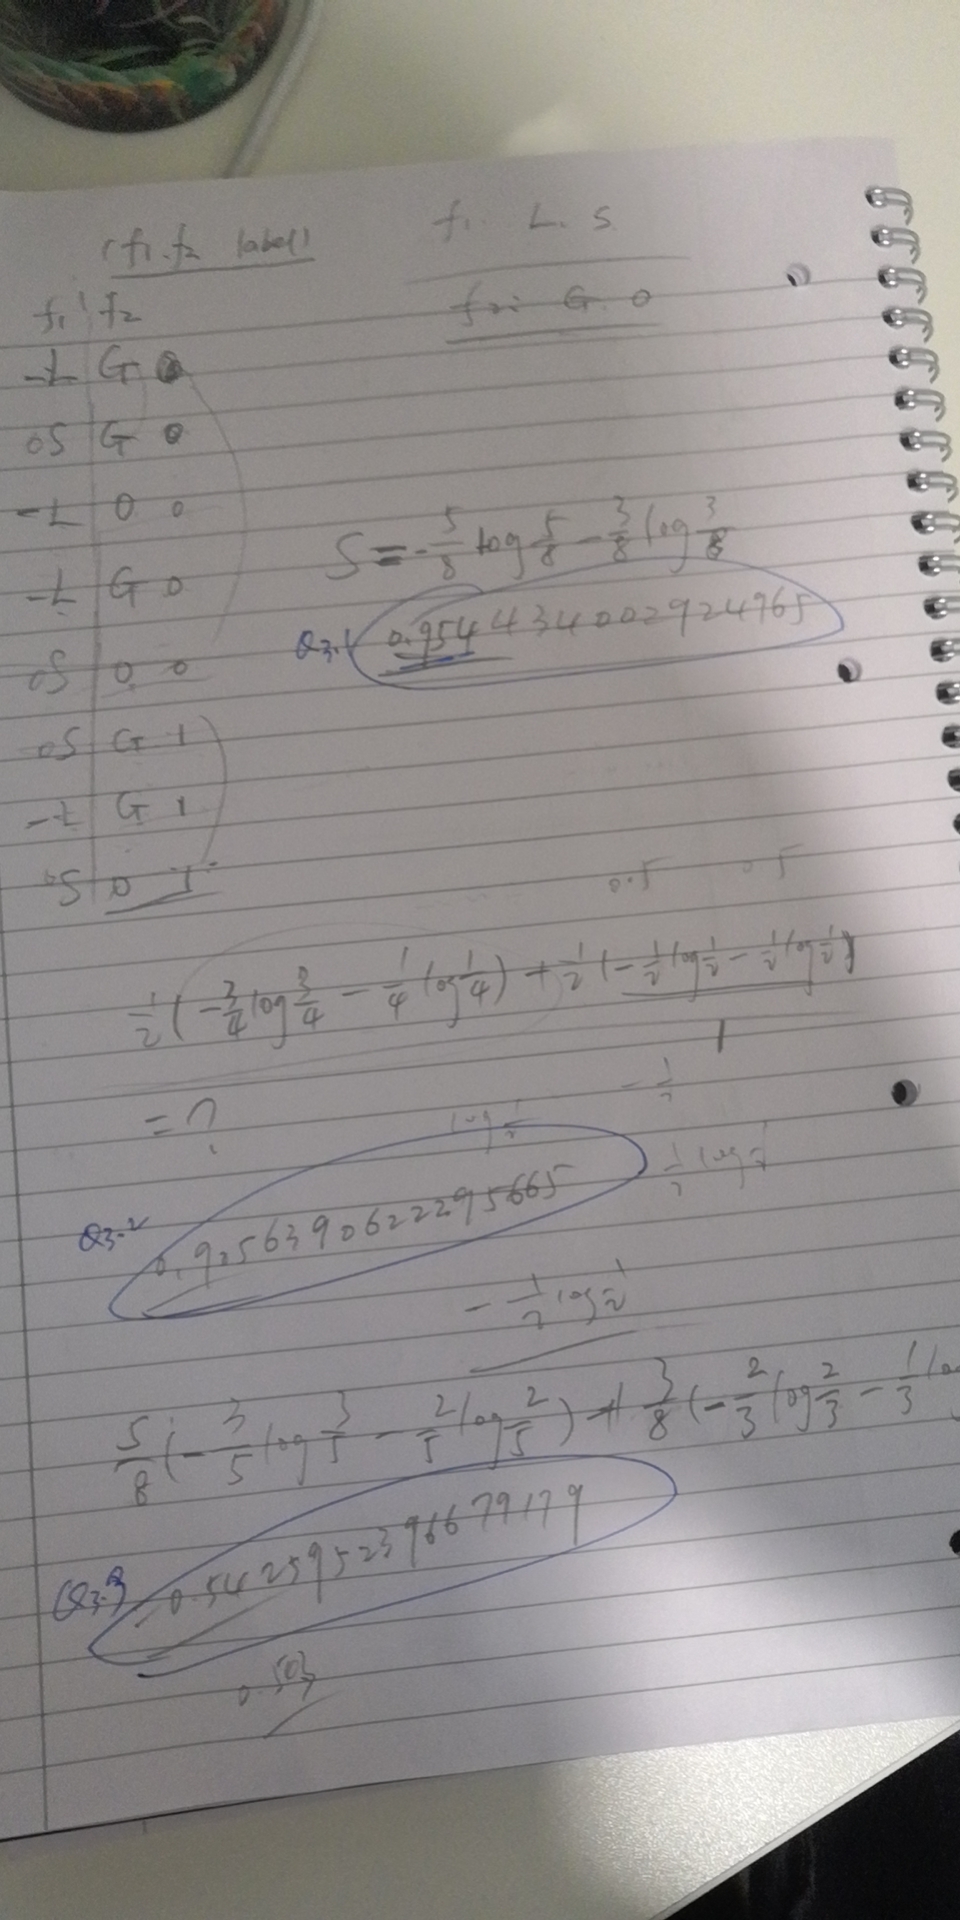 (f₁. f₂ label) f₁. L. S.
f₁ f₂ f₂: G. O
-L G 0
oS G 0
-L O 0
-L G 0
oS O 0
oS G 1
-L G 1
oS O 1
S = -5/8 log 5/8 - 3/8 log 3/8
Q3.1 0.954434002924965
0.5 0.5
1/2 (-3/4 log 3/4 - 1/4 log 1/4) + 1/2 (-1/2 log 1/2 - 1/2 log 1/2)
1
= ?
log 1/2
Q3-2 0.9056390622295665
- 1/2 log 1/2
5/8 (-3/5 log 3/5 - 2/5 log 2/5) + 3/8 (-2/3 log 2/3 - 1/3 lo
Q3-3 0.5425952396679179
0.503